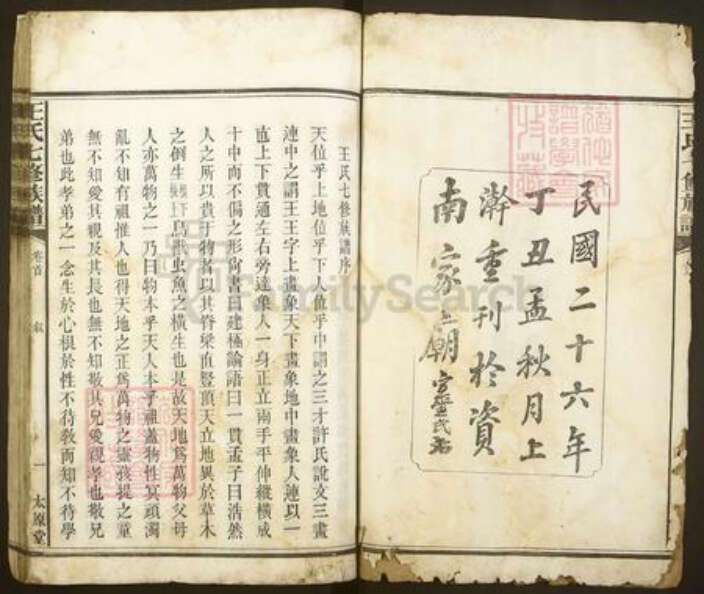 民國二十六年
丁丑孟秋月上
澣重刊於資
南家
王氏七修族譜序
天位乎上地位乎下人位乎中謂之三才許氏說文三畫
連中之謂王王字上畫象天下畫象地中畫象人連以一
直上下貫通左右旁達象人一身正立兩手平伸縱橫成
十中而不偏之形尚書曰建極論語曰一貫孟子曰浩然
人之所以貴于物者以其脊梁直豎頂天立地異於草木
之倒生鳥獸虫魚之橫生也是故天地爲萬物父母
人亦萬物之一乃曰物本乎天人本乎祖蓋物性冥頑濁
亂不知有祖惟人也得天地之正爲萬物之靈孩提之童
無不知愛其親及其長也無不知敬其兄愛親孝也敬兄
弟也此孝弟之一念生於心根於性不待教而知不待學
王氏七修族譜
卷首
敘
一
太原堂
FamilySearch